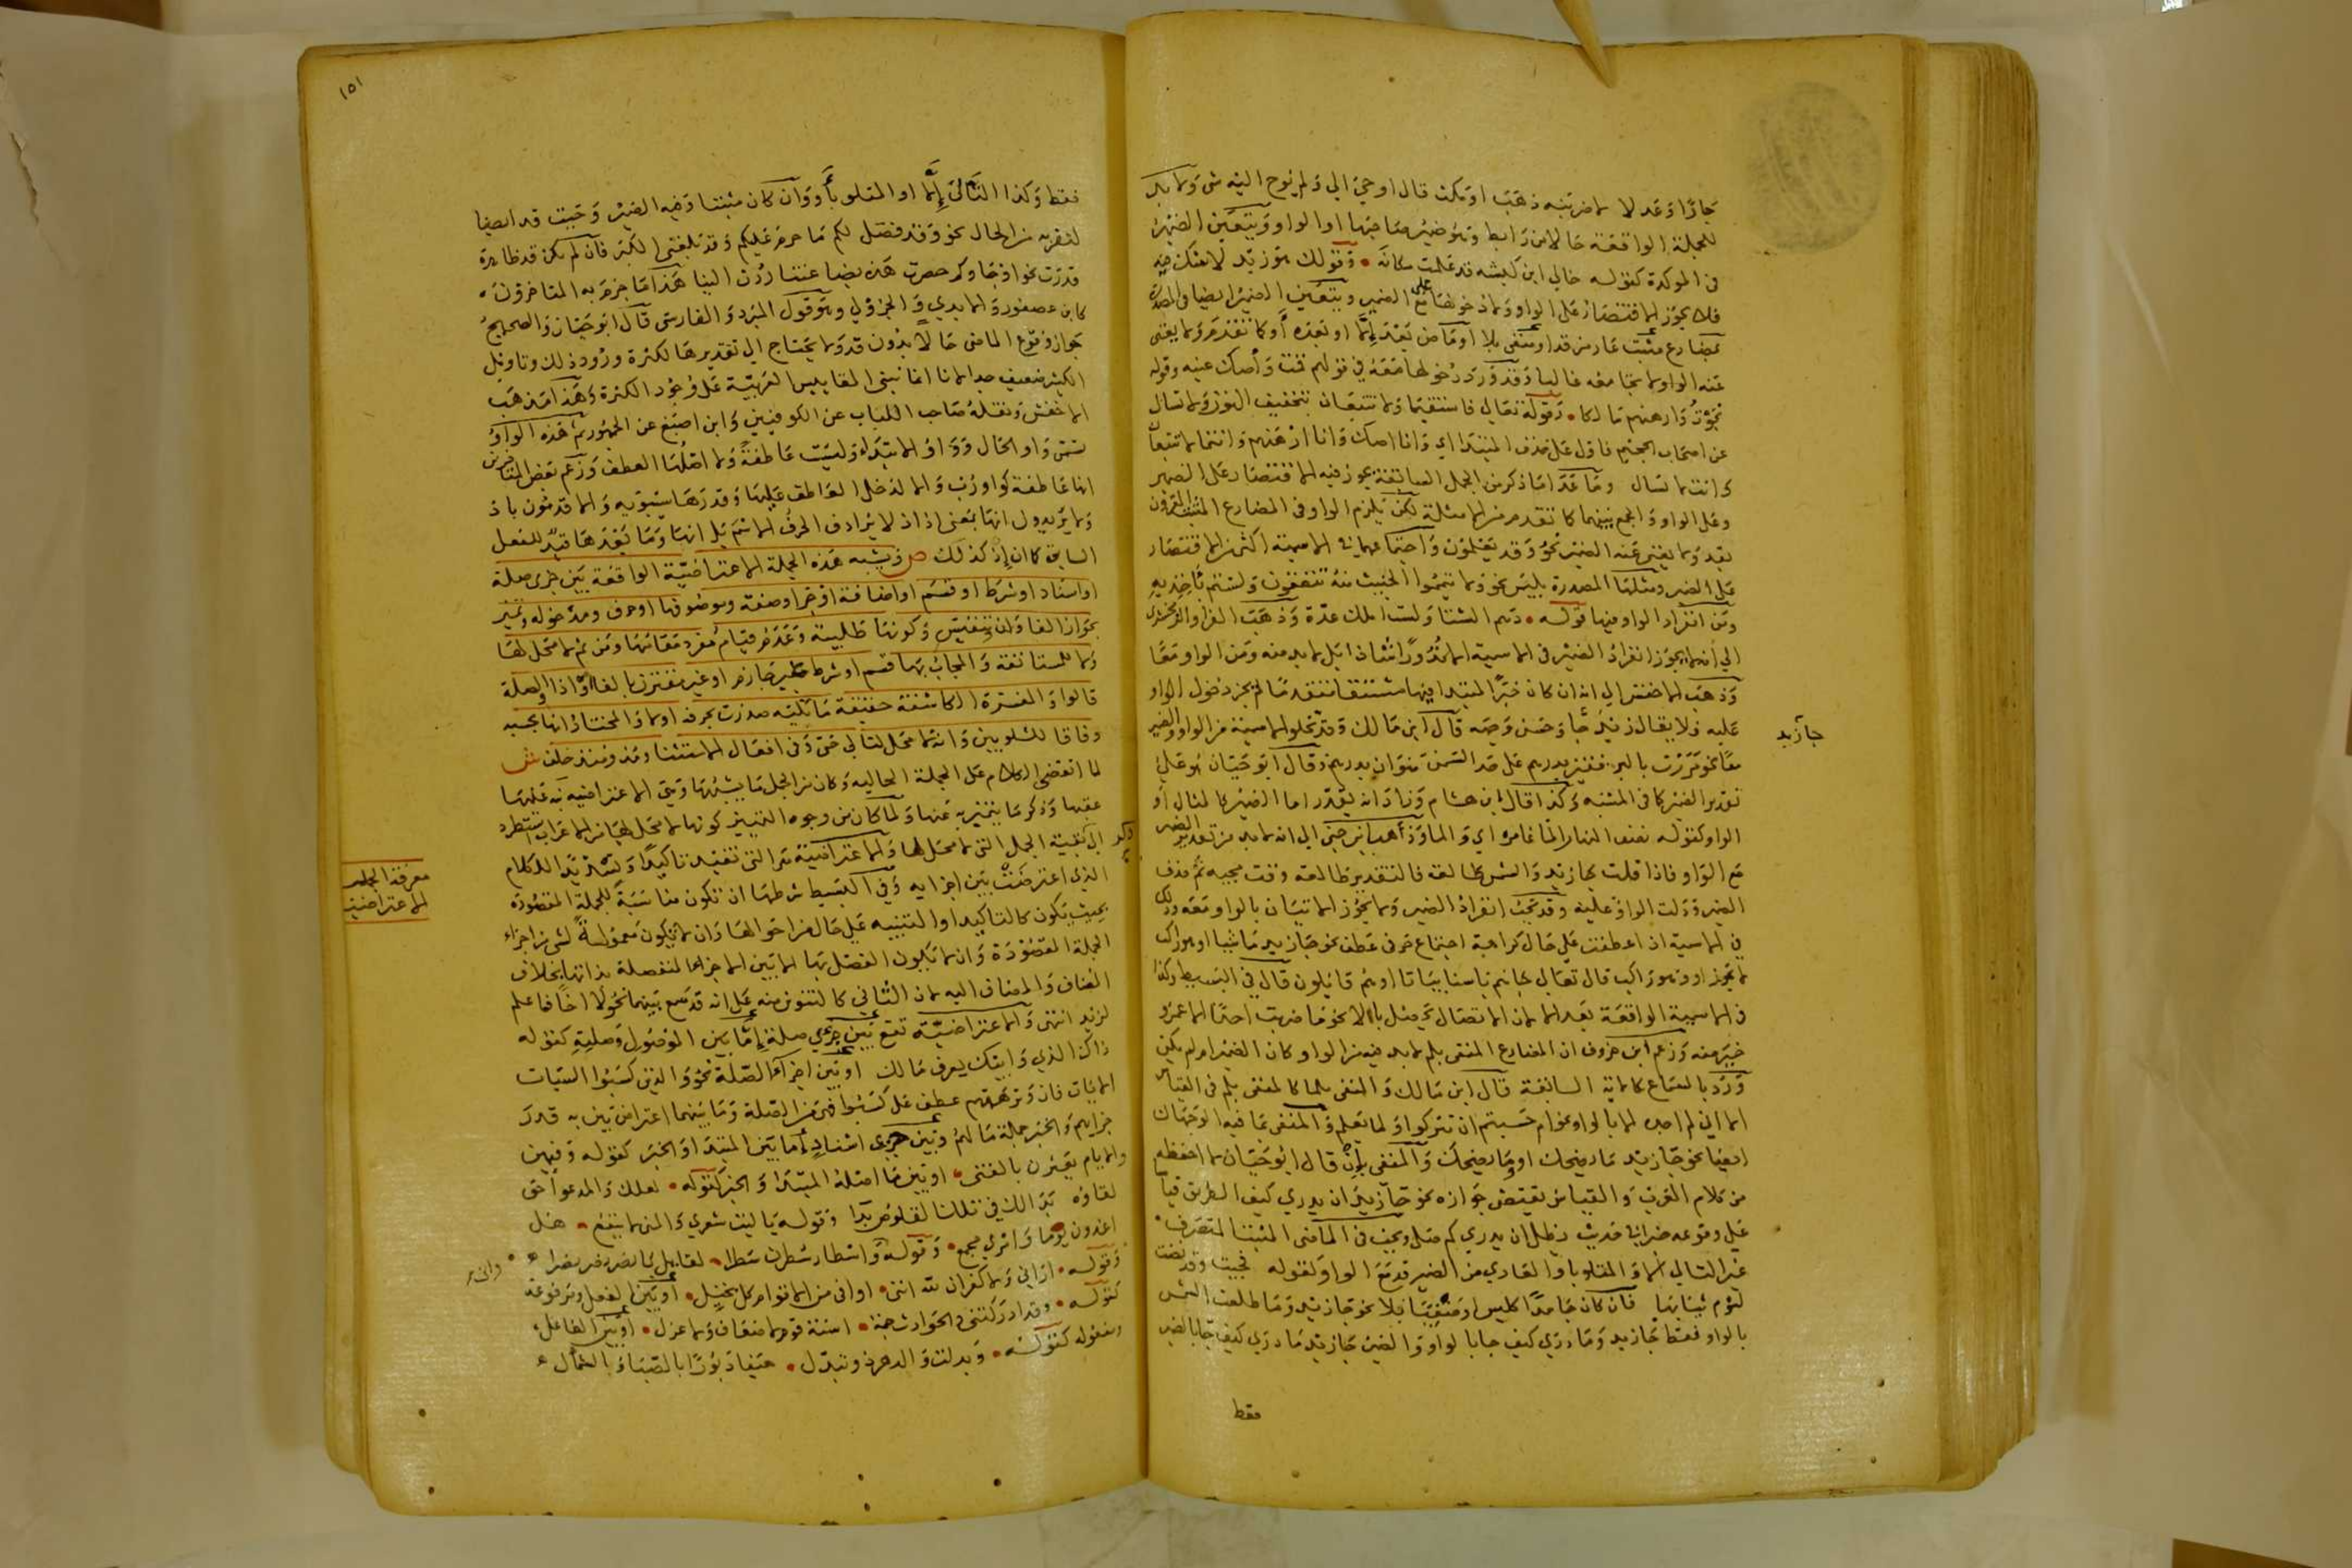 جاؤا وعد لا ضربنه ذهب او مكث قال اوحي الي ولم يوح اليه شي ولا بد
للجملة الواقعة حالا من رابط وهو ضمير صاحبها او الواو ويتعين الضمير
في الموكدة كقوله خالي ابن كبشه قد علمت مكانه وقولك هو زيد لا شك فيه
فلا يجوز الاقتصار على الواو ولا دخولها مع الضمير ويتعين الضمير ايضا في المصدرة
بمضارع مثبت عار من قد او منفي بلا او ماض بعد إلا او بعده أو كما تقدم ولا يغني
عنه الواو ولا تجامعه غالبا وقد ورد دخولها معه في قولهم قمت وأصك عينه وقوله
نجوت وارهنهم مالكا وقوله تعالى فاستقيما ولا تتبعان بتخفيف النون ولا تسال
عن اصحاب الجحيم فاول على حذف المبتدا اي وانا اصك وانا ارهنهم وانتما لا تتبعان
وانت لا تسال وما عدا ما ذكر من الجمل السابقة يجوز فيه الاقتصار على الضمير
وعلى الواو والجمع بينهما كما تقدم من الامثلة لكن يلزم الواو في المضارع المثبت المقرون
بقد ولا يغني عنه الضمير نحو وقد تعلمون واجتماعهما في الاسمية اكثر من الاقتصار
على الضمير ومثلها المصدرة بليس نحو ولا تيمموا الخبيث منه تنفقون ولستم بآخذيه
ومن انفراد الواو فيها قوله دهم الشتا ولست املك عدة وذهب الفرا والزمخشري
الي انه لا يجوز انفراد الضمير في الاسمية الا ندورا شاذا بل لا بد منه ومن الواو معا
وذهب الاخفش الي انه ان كان خبر المبتدا فيها مشتقا متقدما لم يجز دخول الواو
عليه فلا يقال زيد جا وحسن وجهه قال ابن مالك وقد تخلوا الاسمية من الواو والضمير
معا نحو مررت بالبر قفيز بدرهم على حد السمن منوان بدرهم وقال ابو حيان هو على
تقدير الضمير كما في المشبه وكذا قال ابن هشام وزاد انه يقدر اما الضمير كالمثال أو
الواو كقوله نصف النهار الماء غامره اي والماء وذهب ابن جني الي انه لا بد من تقدير الضمير
مع الواو فاذا قلت جا زيد والشمس طالعة فالتقدير طالعة وقت مجيه ثم حذف
الضمير ودلت الواو عليه وقد يجب انفراد الضمير ولا يجوز الاتيان بالواو معه وذلك
في الاسمية اذا عطفت على حال كراهة اجتماع حرفي عطف نحو جا زيد ماشيا او هو راكب
لا يجوز او وهو راكب قال تعالى فجاءهم باسنا بياتا او هم قائلون قال في البسيط وكذا
في الاسمية الواقعة بعد الا لان الاتصال يحصل بالا نحو ما ضربت احدا الا عمرو
خير منه وزعم ابن خروف ان المضارع المنفي بلم لا بد فيه من الواو كان الضمير او لم يكن
ورد بالسماع كالاية السابقة قال ابن مالك والمنفي بلما كالمنفي بلم في القياس
الا اني لم اجده الا بالواو نحو ام حسبتم ان تتركوا ولما يعلم والمنفي بما فيه الوجهان
ايضا نحو جا زيد ما يضحك او وما يضحك والمنفي بإن قال ابو حيان لا احفظه
من كلام العرب والقياس يقتضي جوازه نحو جا زيد ان يدري كيف الطريق قياسا
على وقوعه خبرا في حديث فيظل ان يدري كم صلى وتجب في الماضي المثبت المتصرف
غير التالي الا والمتلو باو العاري من الضمير قد مع الواو كقوله فجيت وقد نضت
لنوم ثيابها فان كان جامدا كليس او منفيا فلا نحو جا زيد وما طلعت الشمس
بالواو فقط جا زيد وما دري كيف جا بالواو والضمير جا زيد ما دري كيف جا بالضمير
جا زيد
فقط
١٥١
فقط وكذا التالي إلا او المتلو باو وان كان مثبتا وفيه الضمير وجبت قد ايضا
لتقربه من الحال نحو وقد فصل لكم ما حرم عليكم وقد بلغني الكبر فان لم يكن قد ظاهرة
قدرت نحو او جاوكم حصرت هذه بضاعتنا ردت الينا هذا ما جزم به المتاخرون
كابن عصفور والابدي والجزولي وهو قول المبرد والفارسي قال ابو حيان والصحيح
جواز وقوع الماضي حالا بدون قد ولا يحتاج الي تقديرها لكثرة ورود ذلك وتاويل
الكثير ضعيف جدا لانا انما نبني المقاييس العربية على وجود الكثرة وهذا مذهب
الاخفش ونقله صاحب اللباب عن الكوفيين وابن اصبغ عن الجمهور ثم هذه الواو
تسمى واو الحال وواو الابتداء وليست عاطفة ولا اصلها العطف وزعم بعض المتاخرين
انها عاطفة كواو رب والا لدخل العاطف عليها وقدرها سيبويه والاقدمون باذ
ولا يريدون انها بمعنى اذ اذ لا يرادف الحرف الاسم بل انها وما بعدها قيد للفعل
السابق كما ان إذ كذلك ص وتشبه هذه الجملة الاعتراضية الواقعة بين جزي صلة
او اسناد او شرط او قسم او اضافة او جر او صفة وموصوفها او حرف ومدخوله وتتميز
بجواز الفا ولن وتنفيس وكونها طلبية وعدم قيام مفرد مقامها ومن ثم لا محل لها
ولا للمستانفة والمجاب بها قسم او شرط غير جازم او غير مقترن بالفا او اذا والصلة
قالوا والمفسرة الكاشفة حقيقة ما تليه صدرت بحرف او لا والمختار انها بحسبه
وفاقا للشلوبين وانه لا محل لتالي حتى وفي افعال الاستثنا ومذ ومنذ خلف ش
لما انقضى الكلام على الجملة الحالية وكان من الجمل ما يشبهها وهي الاعتراضية نبه عليها
عقبها وذكر ما تتميز به عنها ولما كان من وجوه التمييز كونها لا محل لها من الاعراب استطرد
الى بقية الجمل التي لا محل لها والاعتراضية هي التي تفيد تاكيدا وتسديدا للكلام
الذي اعترضت بين اجزايه وفي البسيط شرطها ان تكون مناسبة للجملة المقصودة
بحيث تكون كالتاكيد او التنبيه على حال من احوالها وان لا تكون معمولة لشي من اجزاء
الجملة المقصودة وان لا يكون الفصل بها الا بين الاجزاء المنفصلة بذاتها بخلاف
المضاف والمضاف اليه لان الثاني كالتنوين منه على انه قد سمع بينهما نحو لا اخا فاعلم
لزيد انتهى والاعتراضية تقع بين جزي صلة إما بين الموصول وصلته كقوله
ذاك الذي وابيك يعرف مالك او بين اجزاء الصلة نحو والذين كسبوا السيئات
الايات فان وترهقهم عطف على كسبوا فهي من الصلة وما بينهما اعتراض بين به قدر
جزايهم والخبر جملة ما لهم وبين جزي اسناد إما بين المبتدا والخبر كقوله وفيهن
والايام يعثرن بالفتى او بين ما اصله المبتدا والخبر كقوله لعلك والموعود حق
لقاؤه بدا لك في تلك القلوص بدا وقوله يا ليت شعري والمنى لا ينفع هل
اغدون يوما وامري مجمع وقوله واسطار سطرن سطرا لقايل يا نصر نصر نصرا
وقوله اراني ولا كفران لله انني اواخي من الاقوام كل بخيل او بين الفعل ومرفوعه
كقوله وقد ادركتني والحوادث جمة اسنة قوم لا ضعاف ولا عزل او بين الفاعل
ومفعوله كقوله وبدلت والدهر ذو تبدل هيفا دبورا بالصبا والشمال
معرفة الجملة
الاعتراضية